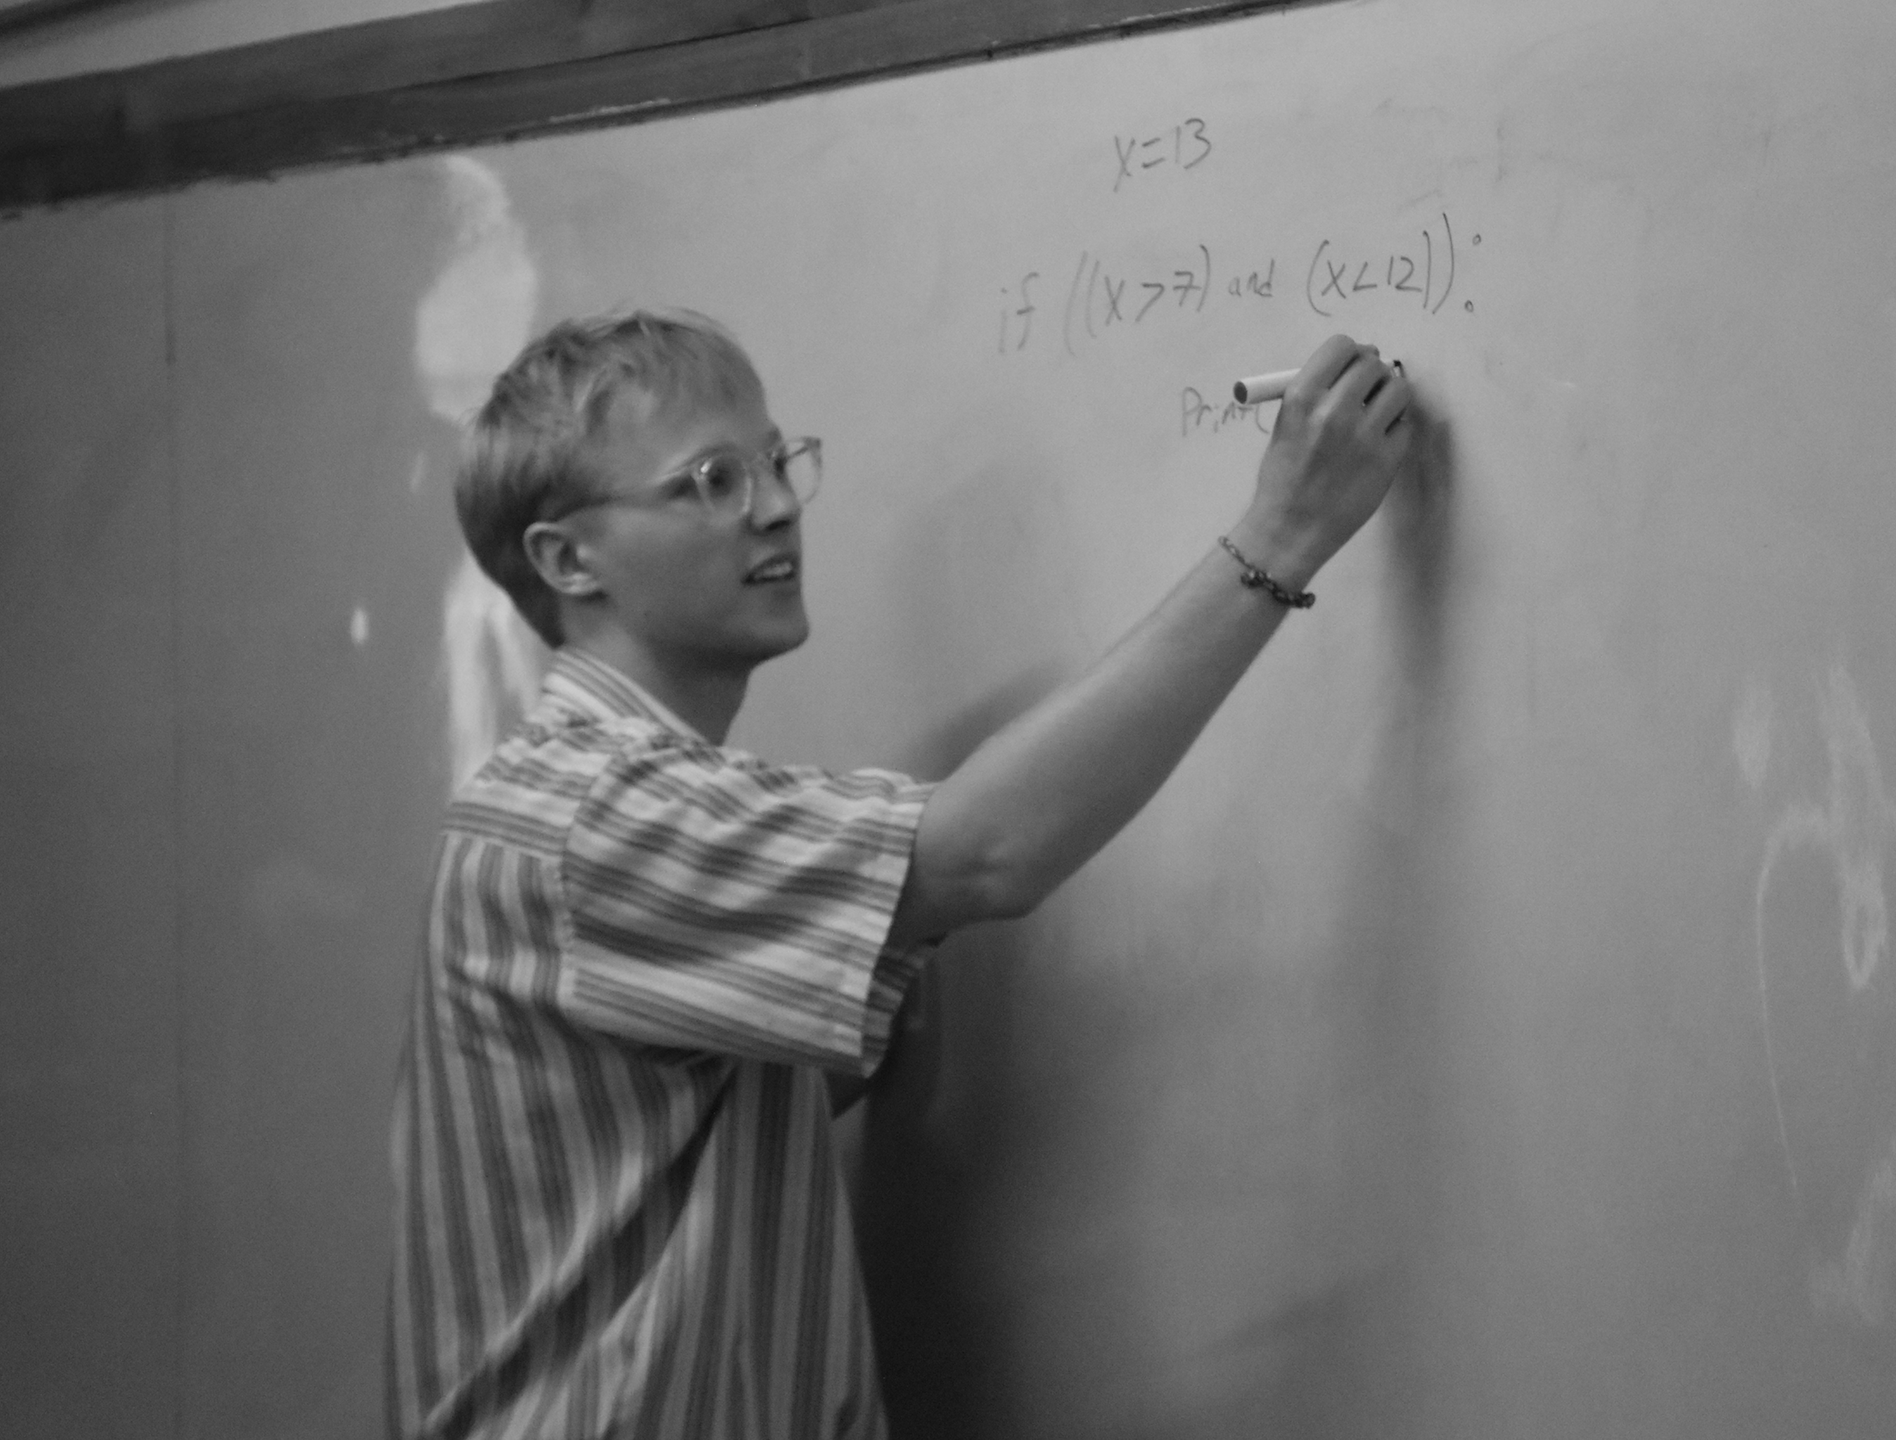 x=13
if ((x>7) and (x<12)):
Print(